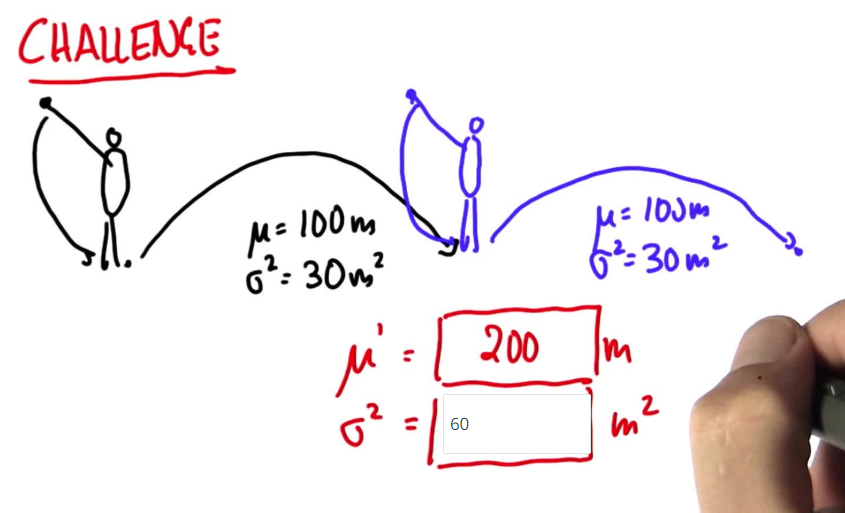 CHALLENGE
μ = 100m
σ² = 30m²
μ = 100m
σ² = 30m²
μ' = 200 m
σ² = 60 m²